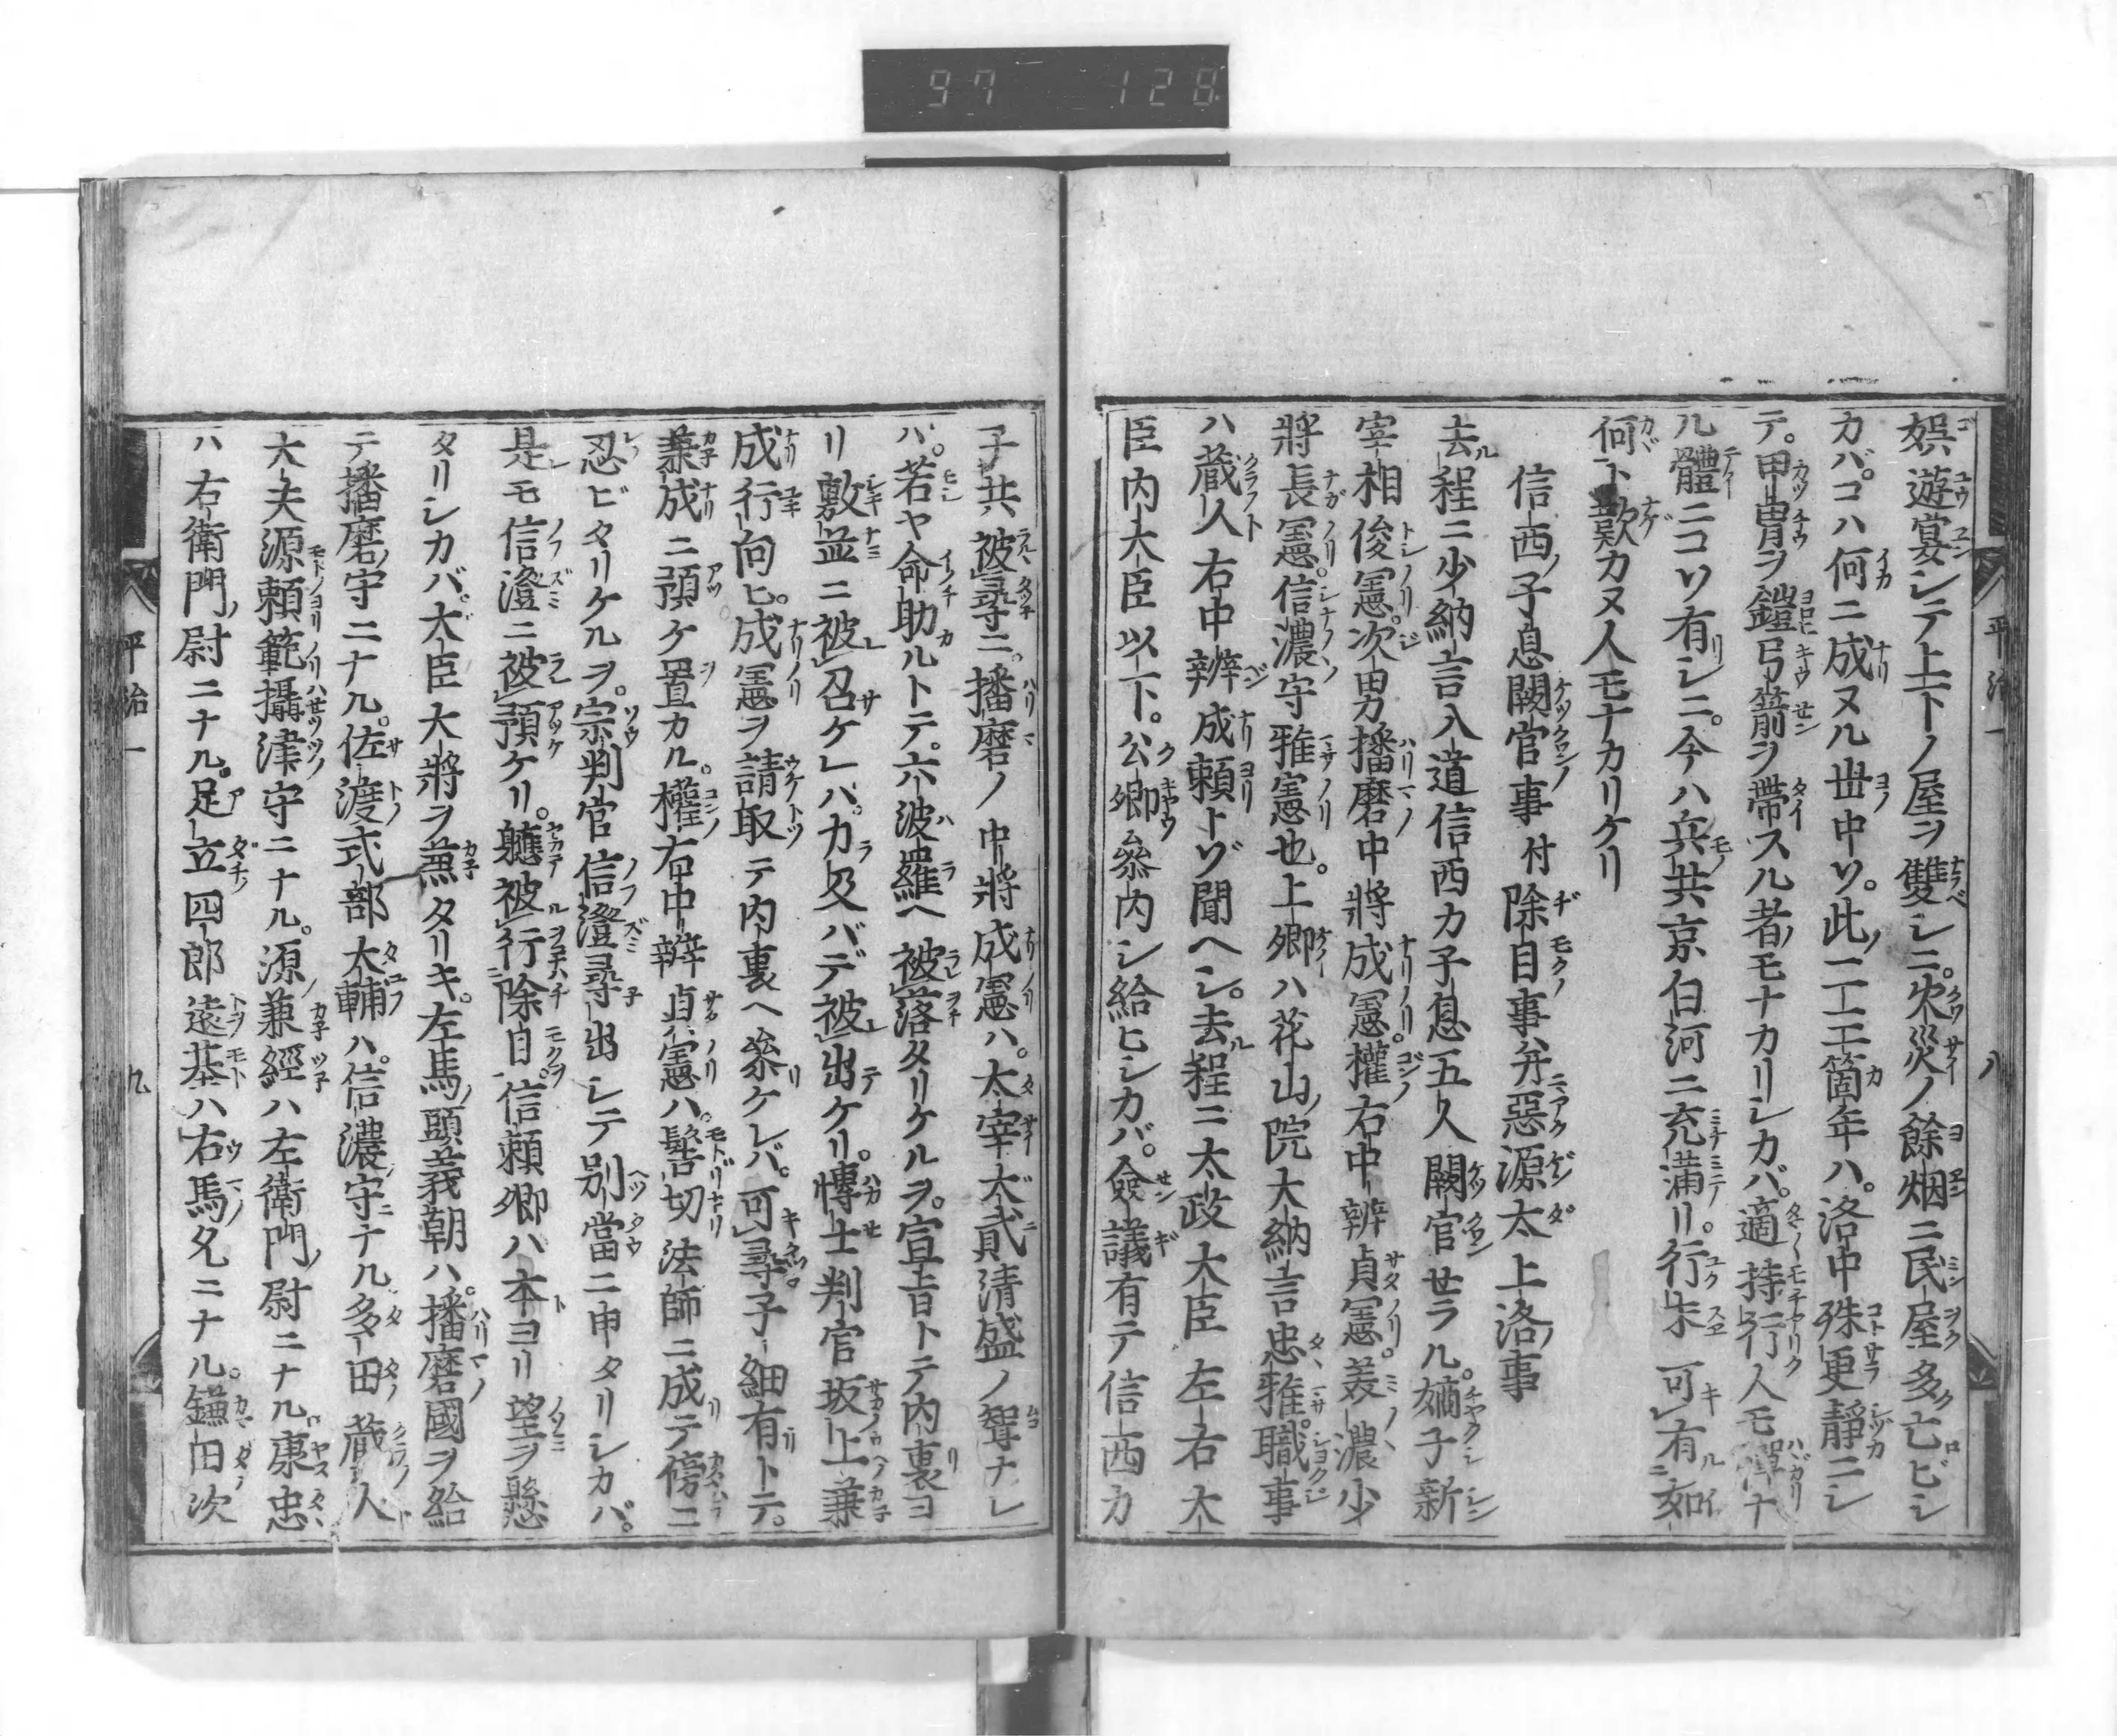 97 128
娯遊宴シテ上下ノ屋ヲ雙シニ。火災ノ餘烟ニ民屋多ク亡ビシ
カバ。コハ何ニ成ヌル世中ソ。此ノ二三箇年ハ。洛中殊更靜ニシ
テ。甲冑ヲ鎧弓箭ヲ帶スル者モナカリシカバ。適持行人モ憚ナ
ル體ニコソ有シニ。今ハ兵共京白河ニ充滿リ。行末可有如
何ト歎カヌ人モナカリケリ
信西ノ子息闕官事付除目事并惡源太上洛ノ事
去程ニ少納言入道信西カ子息五人闕官セラル。嫡子新
宰相俊憲。次男播磨中將成憲。權右中辨貞憲。美濃少
將長憲。信濃守雅憲也。上卿ハ花山ノ院大納言忠雅。職事
ハ藏人右中辨成頼トゾ聞ヘシ。去程ニ太政大臣左右大
臣内大臣以下。公卿參内シ給ヒシカバ。僉議有テ信西カ
平治一 八
子共被尋ニ。播磨ノ中將成憲ハ。太宰大貳清盛ノ聟ナレ
バ。若ヤ命助ルトテ。六波羅ヘ被落タリケルヲ。宣旨トテ内裏ヨ
リ敷並ニ被召ケレバ。力及バデ被出ケリ。博士判官坂上兼
成行向ヒ。成憲ヲ請取テ内裏ヘ參ケレバ。可尋子細有トテ。
兼成ニ預ケ置カル。權右中辨貞憲ハ。髻切法師ニ成テ傍ニ
忍ビタリケルヲ。宗判官信澄尋出シテ別當ニ申タリシカバ。
是モ信澄ニ被預ケリ。軈被行除目。信頼卿ハ本ヨリ望ヲ懸
タリシカバ。大臣大將ヲ兼タリキ。左馬頭義朝ハ。播磨國ヲ給
テ播磨守ニナル。佐渡式部大輔ハ。信濃守ニナル。多田藏人
大夫源頼範攝津守ニナル。源兼經ハ左衛門ノ尉ニナル。康忠
ハ右衛門ノ尉ニナル。足立四郎遠基ハ右馬允ニナル。鎌田次
平治一 九